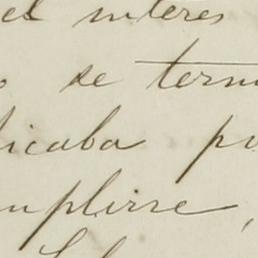 el interes
de term
licaba p
mplirse,